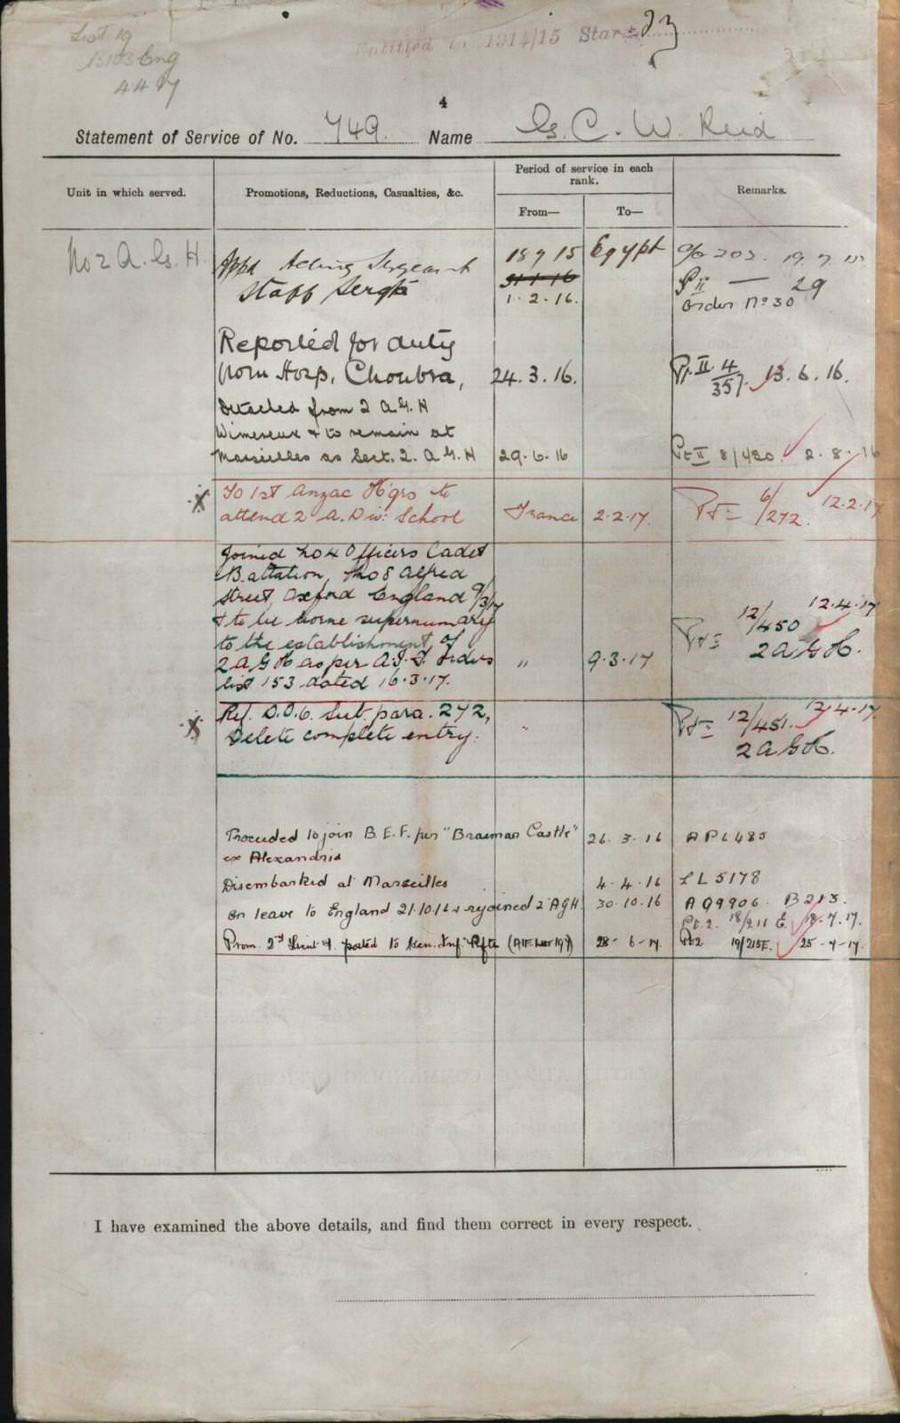 List 19
Entitled to 1914/15 Star
4
Statement of Service of No. 749. Name G. C. W. Reid
Unit in which served. Promotions, Reductions, Casualties, &c. Period of service in each rank. Remarks.
From— To—
No 2 A. G. H. Appd Acting Sergeant 18 7 15 Egypt 19 7 15
Staff Sergt 31-1-16 Pt II — 29
1. 2. 16. Order No 30
Reported for duty
from Hosp. Choubra, 24. 3. 16. Pt. II 4/357 13. 6. 16.
Detached from 2 A.G.H
Wimereux & to remain at
Marseilles as Sect. 2. A.G.H 29. 6. 16 Pt II 8/420. 2. 8. 16
X To 1st Anzac Hqrs to
attend 2 A. Div: School France 2.2.17. Pt II 6/272. 12.2.17
Joined No 4 Officers Cadet
Battalion, No 8 Alfred
Street, Oxford England 9/3/17
& to be borne supernumary 12/450 12.4.17
to the establishment of 2 A G H.
2 A G H as per A.I.F. Orders " 9.3.17
list 153 dated 16.3.17.
X Ref. D.O.6. Sub. para. 272, Pt II 12/451. 12.4.17.
Delete complete entry. " 2 A G H.
Proceeded to join B.E.F. per "Braemar Castle" 26. 3. 16 APL 485
ex Alexandria
Disembarked at Marseilles 4. 4. 16 LL 5178
On leave to England 21.10.16 & rejoined 2 AGH 30.10.16 AQ9906 B213.
Pt. 2. 18/211 E. 18.7.17.
Prom. 2nd Lieut & posted to Gen. Inf. Rfts 28- 6-17. Pt2 19/215E. 25-7-17.
I have examined the above details, and find them correct in every respect.